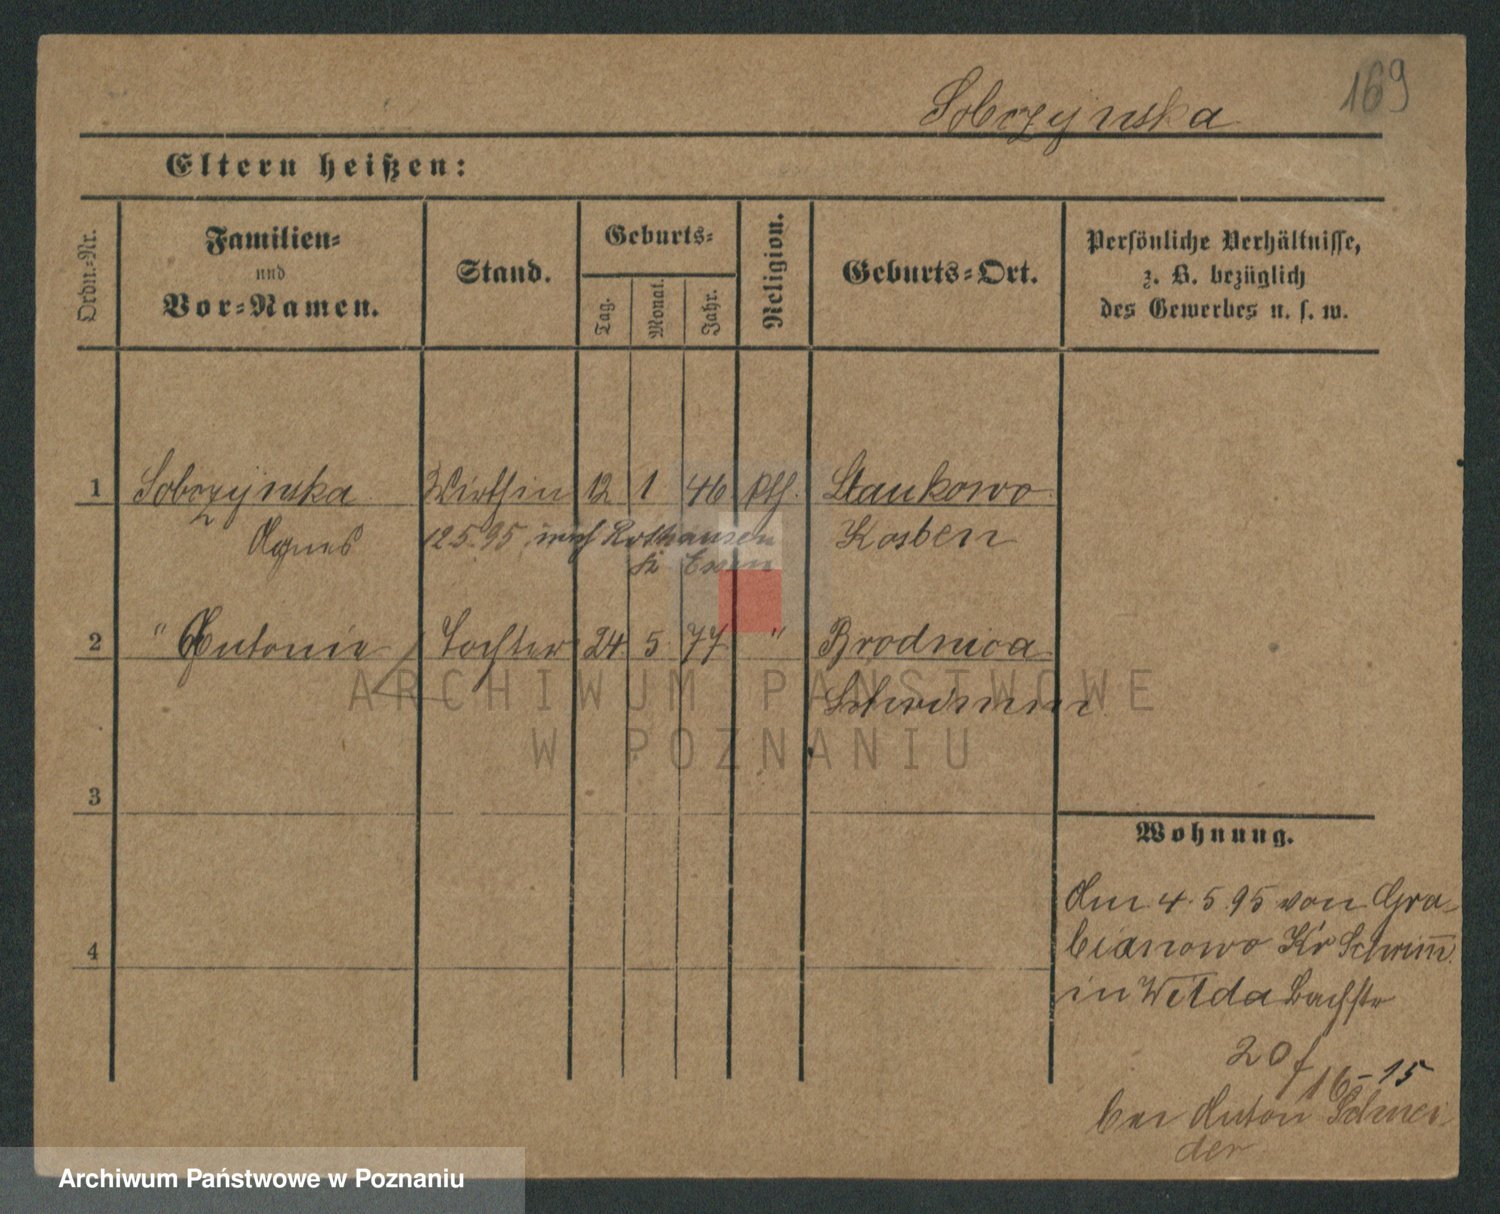 169
Sobczynska
Eltern heißen:
Ordn.-Nr.
Familien-
und
Vor-Namen.
Stand.
Geburts-
Tag.
Monat.
Jahr.
Religion.
Geburts-Ort.
Persönliche Verhältnisse,
z. B. bezüglich
des Gewerbes u. s. w.
1 Sobczynska Wirthin 12 1 46 kth. Stankowo
Agnes 12.5.95 nach Rothausen Kosten
2 " Antonie Tochter 24 5 77 " Brodnica
Schrimm
ARCHIWUM PAŃSTWOWE
W POZNANIU
3
4
Wohnung.
Am 4.5.95 von Gra-
bianowo Kr Schrimm
in Wilda Bachstr
20
16-15
bei Anton Schnei
der
Archiwum Państwowe w Poznaniu